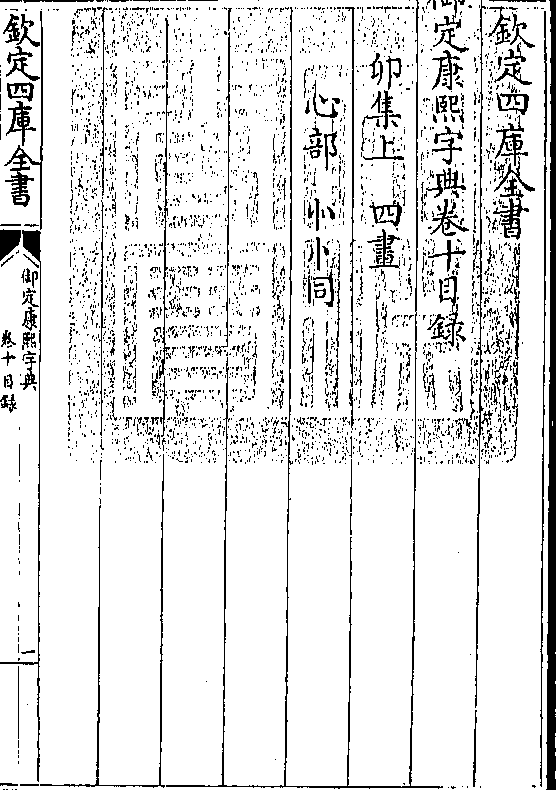 欽定四庫全書
御定康熙字典卷十目録
卯集上 四畫
心部 忄㣺同
欽定四庫全書
御定康熙字典
卷十目録
一